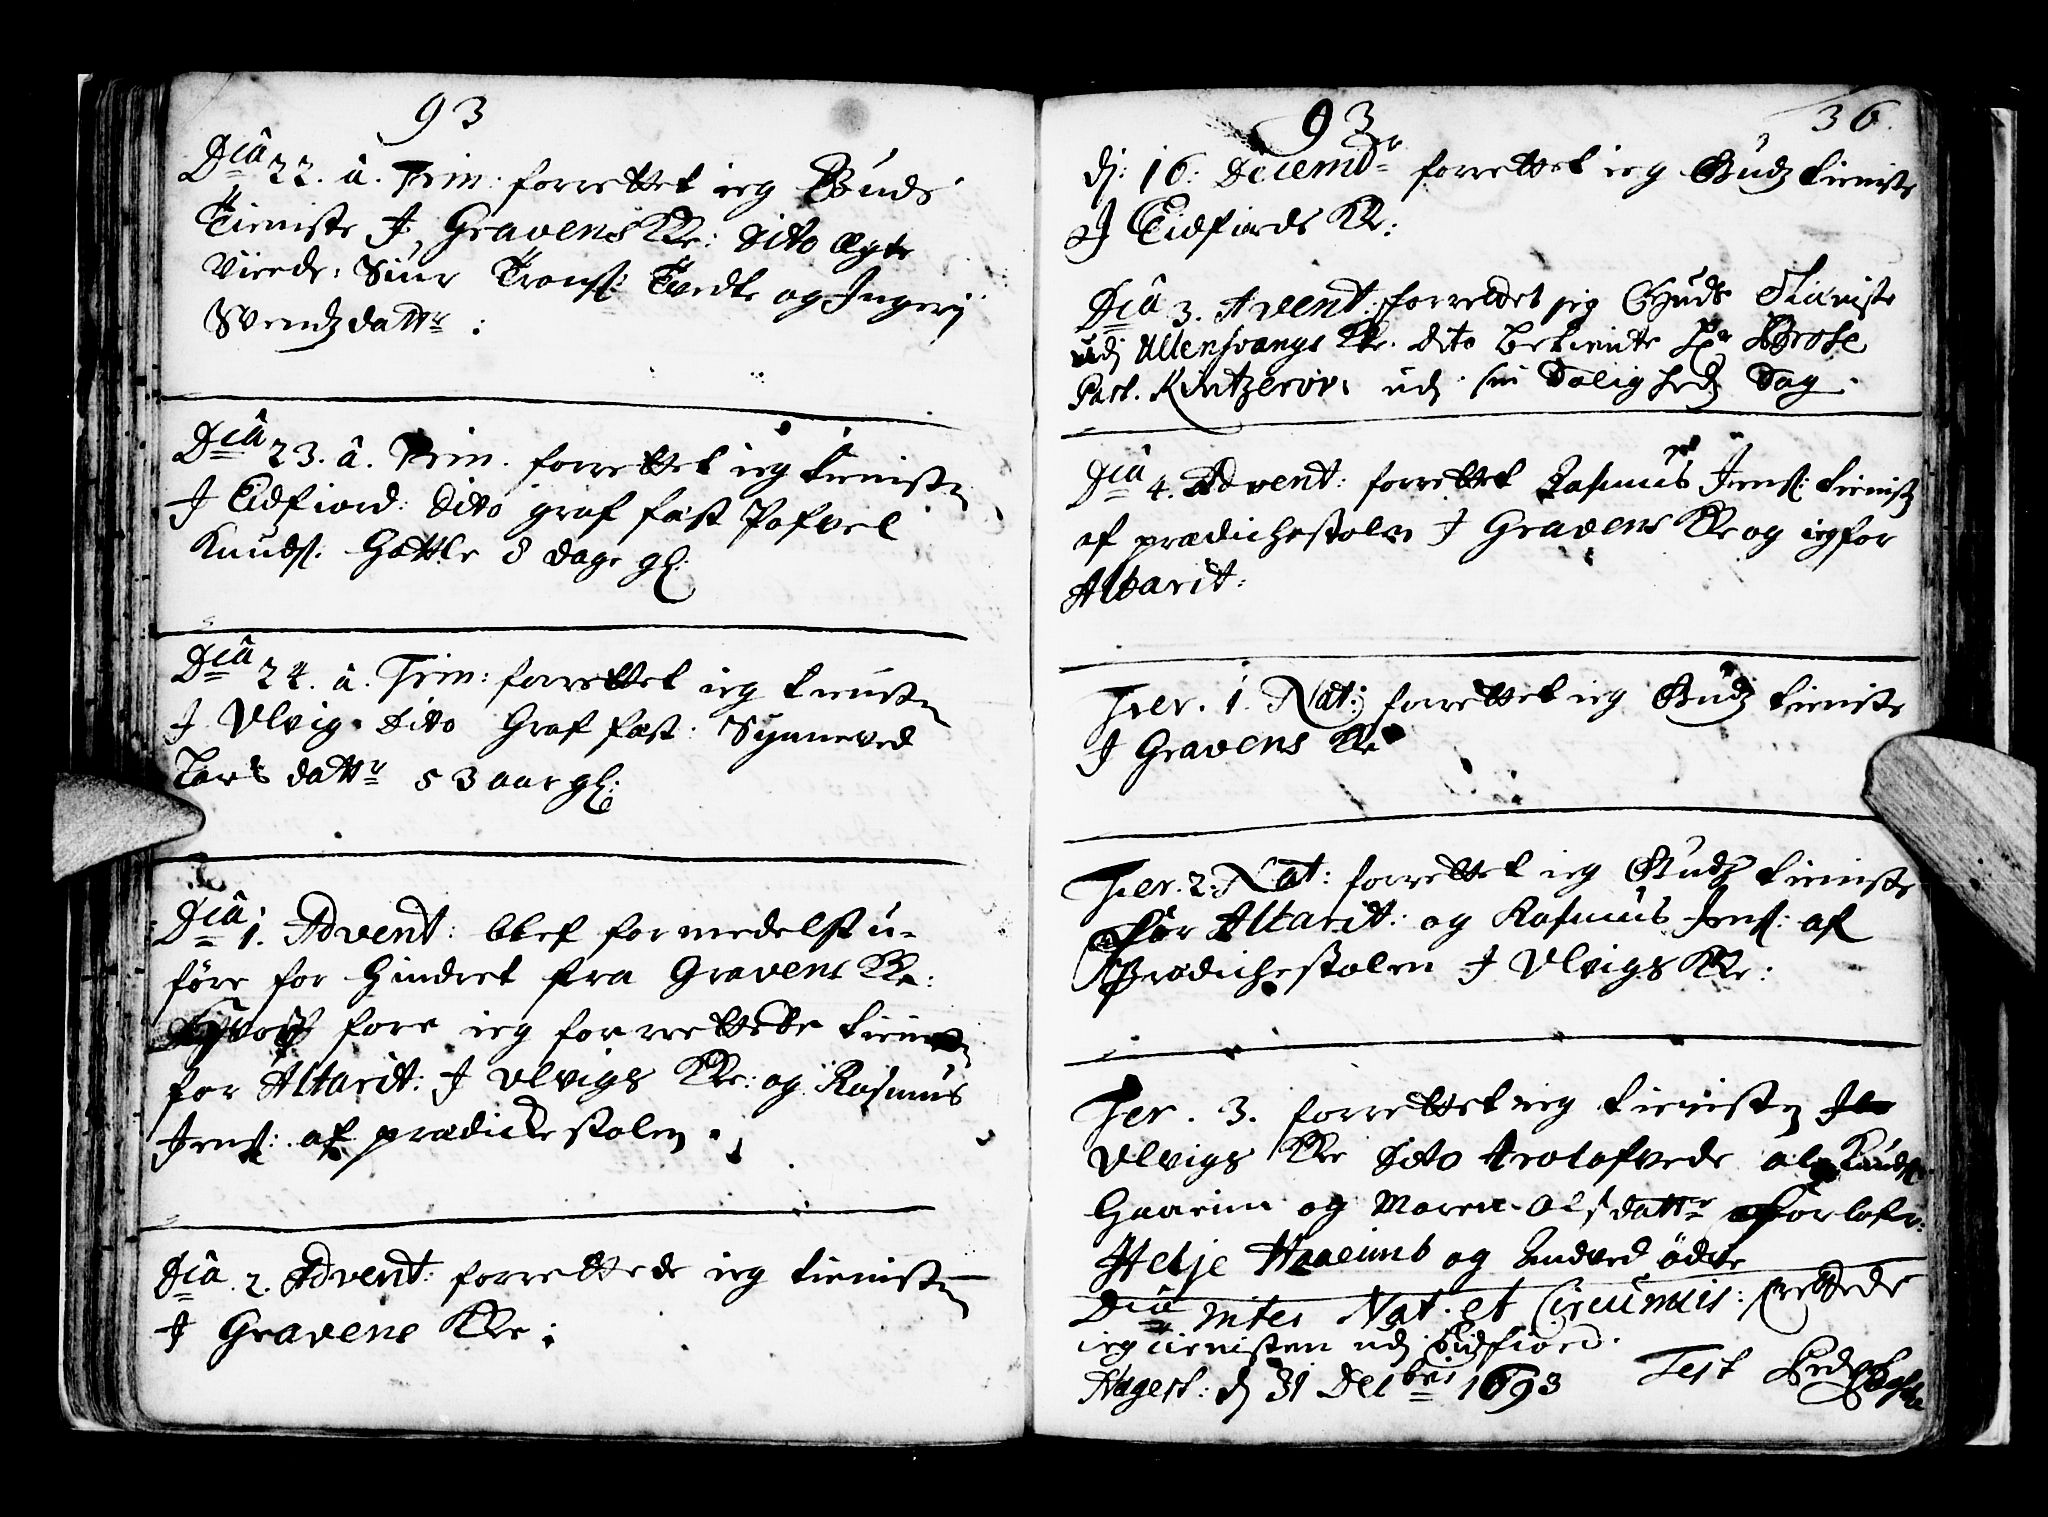 93
Dca 22. à. Trin: forrettet ieg Guds
Tieniste J, Gravens Kke: dito ægte
Viede: Siur Trons: Tvedte og Ingerj
Svendzdattr :
Dca 23. à. Trin. forrettet ieg tienisten
J Eidfiord: dito graf fæst Pofvel
Knuds: Hættle 8 dage gl:
Dca 24. à. Trin: forrettet ieg tienisten
J Ulvig. dito Graf fæst: Synneved
Lars dattr 53 aar gl:
Dca 1. Advent: blef formedelst u-
före for hindret fra Gravens Kke:
fore ieg forrettede tienisten
for Altarit: J Ulvigs Kke: og Rasmus
Jens: af prædickestolen.
Dca. 2. Advent: forrettede ieg tienisten
J Gravens Kke:
93 36.
dj: 16: Decembr forrettet ieg Gudz tieniste
J Eidfiords Kk:
Dca 3. Avent: forrettet jeg Guds Tieniste
udj Ullensvangs Kke. dito bekiente Hr
Past. Kintzervi. udj sin Saligheds Sag.
Dca 4. Advent: forrettet Rasmus Jens: tienist
af prædichestolen J Gravens Kke og ieg for
Altarit:
Fer. 1. Nat: forrettet ieg Gudz tieniste
J Gravens Kke
Fer. 2. Nat: forrettet ieg Gudz tieniste
for Altarit: og Rasmus Jens: af
Prædichestolen J Ulvigs Kke:
Fer. 3. forrettet ieg tienisten J
Ulvigs Kke dito trolofvede Ole Knuds:
Haaeim og Maren Olsdattr Forlofr:
Helje Haaeimb og Andved ödve
Dca inter Nat. et Circumcis: forrettede
ieg tienisten udj Eidfiord.
Hagest: dj 31 Decbris 1693 Test